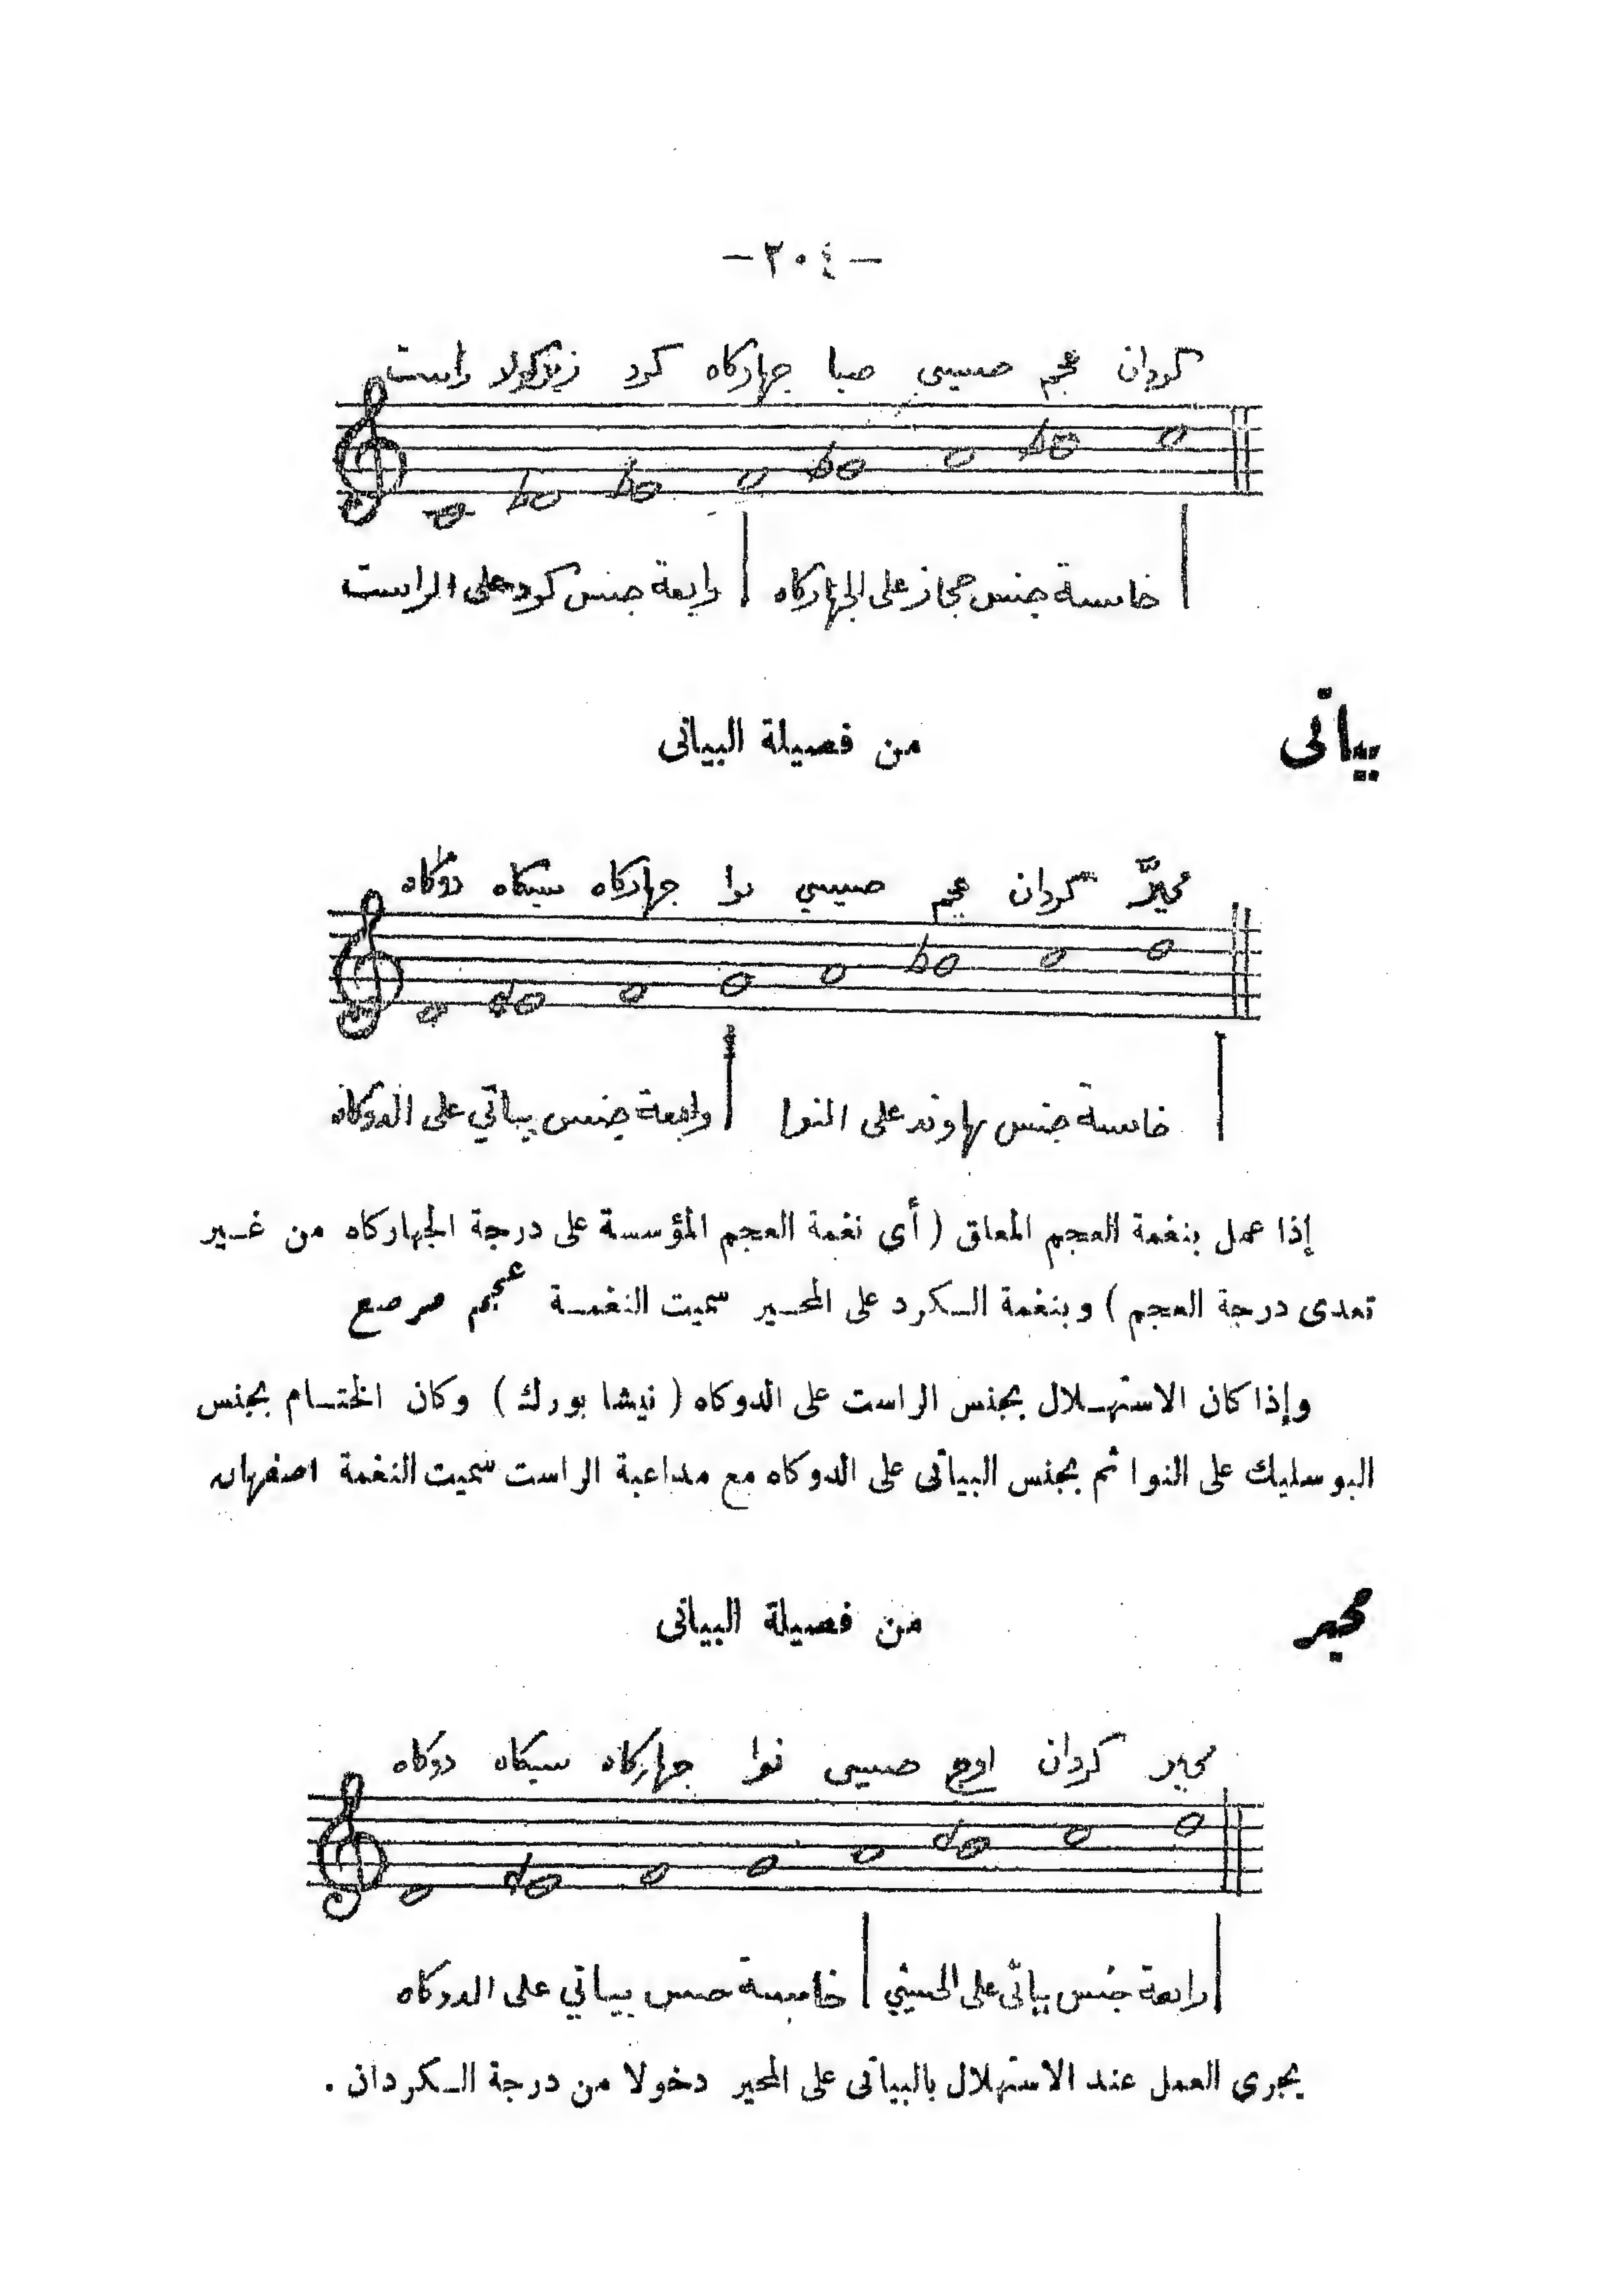 — ٢٠٤ —
كردان عجم حسيني صبا جهاركاه كرد زيركولا راست
خامسة جنس حجاز على الجهاركاه | رابعة جنس كرد على الراست
بياتى
من فصيلة البياتى
محيّر كردان عجم حسيني نوا جهاركاه سيكاه دوكاه
خامسة جنس نهاوند على النوا | رابعة جنس بياتي على الدوكاه
إذا عمل بنغمة العجم المعلق ( أى نغمة العجم المؤسسة على درجة الجهاركاه من غـير
تعدى درجة العجم ) وبنغمة الـكرد على المحـير سميت النغمـة عجم مرصع
وإذا كان الاستهـلال بجنس الراست على الدوكاه ( نيشا بورك ) وكان الختـام بجنس
البوسليك على النوا ثم بجنس البياتى على الدوكاه مع مداعبة الراست سميت النغمة اصفهان
محير
من فصيلة البياتى
محير كردان اوج حسيني نوا جهاركاه سيكاه دوكاه
رابعة جنس بياتى على الحسيني | خامسة جنس بياتي على الدوكاه
يجرى العمل عند الاستهلال بالبياتى على المحير دخولا من درجة الـكردان .